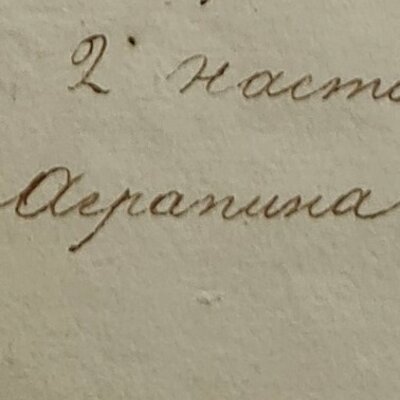 2 насто
Аграпина